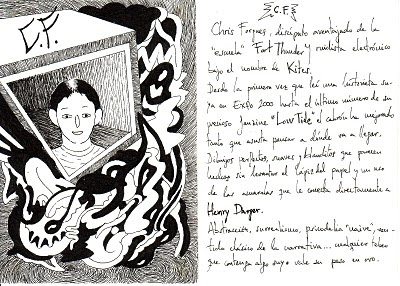 C.F.
C.F.
Chris Forgues, discípulo aventajado de la
"escuela" Fort Thunder y ruidista electrónico
bajo el nombre de Kites.
Desde la primera vez que leí una historieta su-
ya en Expo 2000 hasta el último número de su
precioso fanzine "Low Tide" el cabrón ha mejorado
tanto que asusta pensar a dónde va a llegar.
Dibujos perfectos, suaves y blanditos que parecen
hechos sin levantar el lápiz del papel y un uso
de las acuarelas que le conecta directamente a
Henry Darger.
Abstracción, surrealismo, psicodelia "naive", sen-
tido clásico de la narrativa... cualquier tebeo
que contenga algo suyo vale su peso en oro.